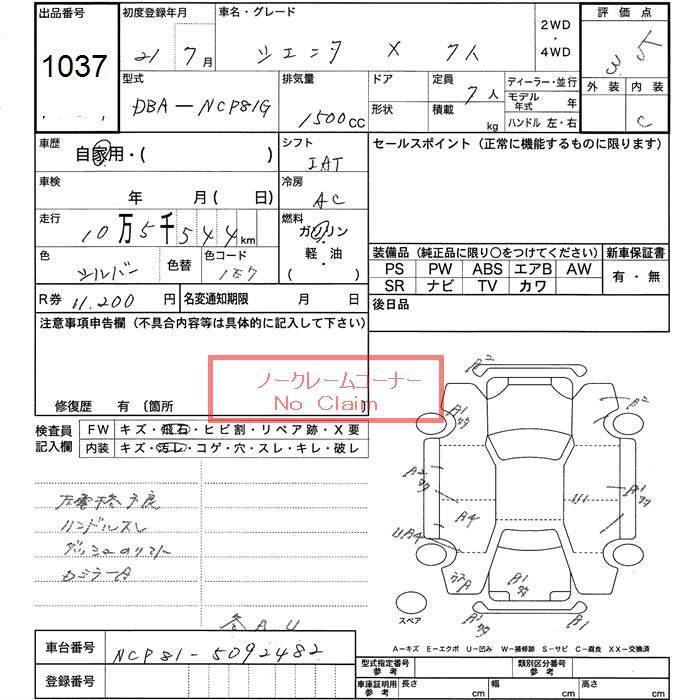 出品番号 初度登録年月 車名・グレード 2WD・4WD 評価点
1037 21年 7月 シエンタ X 7人 3.5
型式 排気量 ドア 定員 ディーラー・並行 外装 内装
DBA-NCP81G 1500CC 形状 7人 積載 kg モデル年式 年 ハンドル 左・右 C
車歴 自家用・( ) シフト IAT セールスポイント (正常に機能するものに限ります)
車検 年 月( 日) 冷房 AC
走行 10万5千544km 燃料 ガソリン・軽油 ( )
色 シルバー 色替 色コード 装備品 (純正品に限り○をつけてください) 新車保証書
PS PW ABS エアB AW 有・無
SR ナビ TV カワ
R券 11,200円 名変通知期限 月 日 後日品
注意事項申告欄 (不具合内容等は具体的に記入して下さい)
ノークレームコーナー
No Claim
修復歴 有 〔箇所
検査員記入欄 FW キズ・飛石・ヒビ割・リペア跡・X要
内装 キズ・汚レ・コゲ・穴・スレ・キレ・破レ
ハンドルスレ
A2
A1
A2
A1
A4
UA4
A1
A1
スペア
各AU
A-キズ E-エクボ U-凹み W-補修跡 S-サビ C-腐食 XX-交換済
車台番号 NCP81-5092482
登録番号
型式指定番号 参考 類別区分番号 参考
車庫証明用 参考 長さ cm 幅 cm 高さ cm